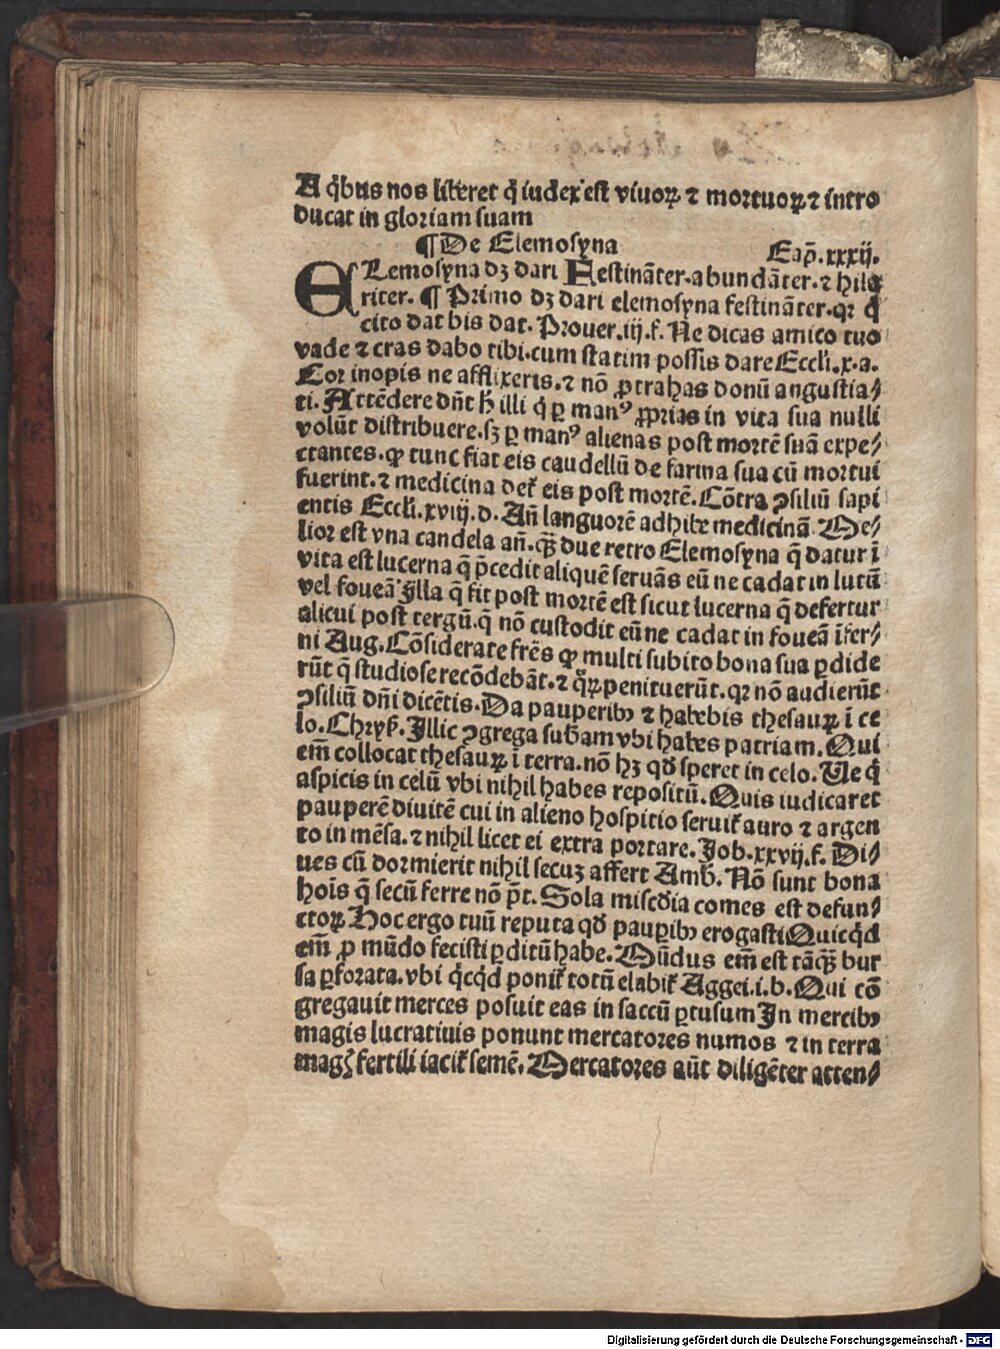 A q̄bus nos liberet q̄ iudex est viuoꝝ ⁊ mortuoꝝ ⁊ intro
ducat in gloriam suam
¶ De Elemosyna Cap̄. xxxij.
ELemosyna dꝫ dari Festināter. abundāter. ⁊ hila
riter. ¶ Primo dꝫ dari elemosyna festinanāter. qꝛ q̄
cito dat bis dat. Prouer. iij. f. Ne dicas amico tuo
vade ⁊ cras dabo tibi. cum statim possis dare Eccli. x. a.
Cor inopis ne afflixeris. ⁊ nō ꝓtrahas donū angustia⸗
ti. Attēdere dn̄t h̄ illi q̄ ꝑ manꝰ ꝓprias in vita sua nulli
volūt distribuere. sꝫ ꝑ manꝰ alienas post mortē suā expe⸗
ctantes. ꝙ tunc fiat eis caudellū de farina sua cū mortui
fuerint. ⁊ medicina det᷑ eis post mortē. Cōtra ꝯsiliū sapi
entis Eccli. xviij. d. An̄ languorē adhibe medicinā. Me⸗
lior est vna candela an̄. qꝫ̄ due retro Elemosyna q̄ datur ī
vita est lucerna q̄ p̄cedit aliquē seruās eū ne cadat in lutū
vel foueā Illa q̄ fit post mortē est sicut lucerna q̄ defertur
alicui post tergū. q̄ nō custodit eū ne cadat in foueā īfer⸗
ni Aug. Cōsiderate fr̄es ꝙ multi subito bona sua ꝑdide
rūt q̄ studiose recōdebāt. ⁊ q̄ꝝ penituerūt. qꝛ nō audierūt
ꝯsiliū dn̄i dicētis. Da pauperibꝰ ⁊ habebis thesauꝝ ī ce
lo. Chrys̄. Illic ꝯgrega sub̄am vbi habes patriam. Qui
em̄ collocat thesauꝝ ī terra. nō hꝫ qd̄ speret in celo. Ue q̄
aspicis in celū vbi nihil habes repositū. Quis iudicaret
pauperē diuitē cui in alieno hospitio seruit᷑ auro ⁊ argen
to in mēsa. ⁊ nihil licet ei extra portare. Job. xxvij. f. Di⸗
ues cū dormierit nihil secuꝫ affert Amb̄. Nō sunt bona
hoīs q̄ secū ferre nō p̄t. Sola mis̄cdia comes est defun⸗
ctoꝝ Hoc ergo tuū reputa qd̄ pauꝑibꝰ erogasti Quicq̄d
em̄ ꝓ mūdo fecisti ꝑditū habe. Mūdus em̄ est tāqꝫ̄ bur
sa ꝑforata. vbi q̄cq̄d ponit᷑ totū elabit᷑ Aggei. i. b. Qui cō
gregauit merces posuit eas in saccū ꝑtusum In mercibꝰ
magis lucratiuis ponunt mercatores numos ⁊ in terra
mag̉ fertili iacit᷑ semē. Mercatores aūt diligēter atten⸗
Digitalisierung gefördert durch die Deutsche Forschungsgemeinschaft - DFG